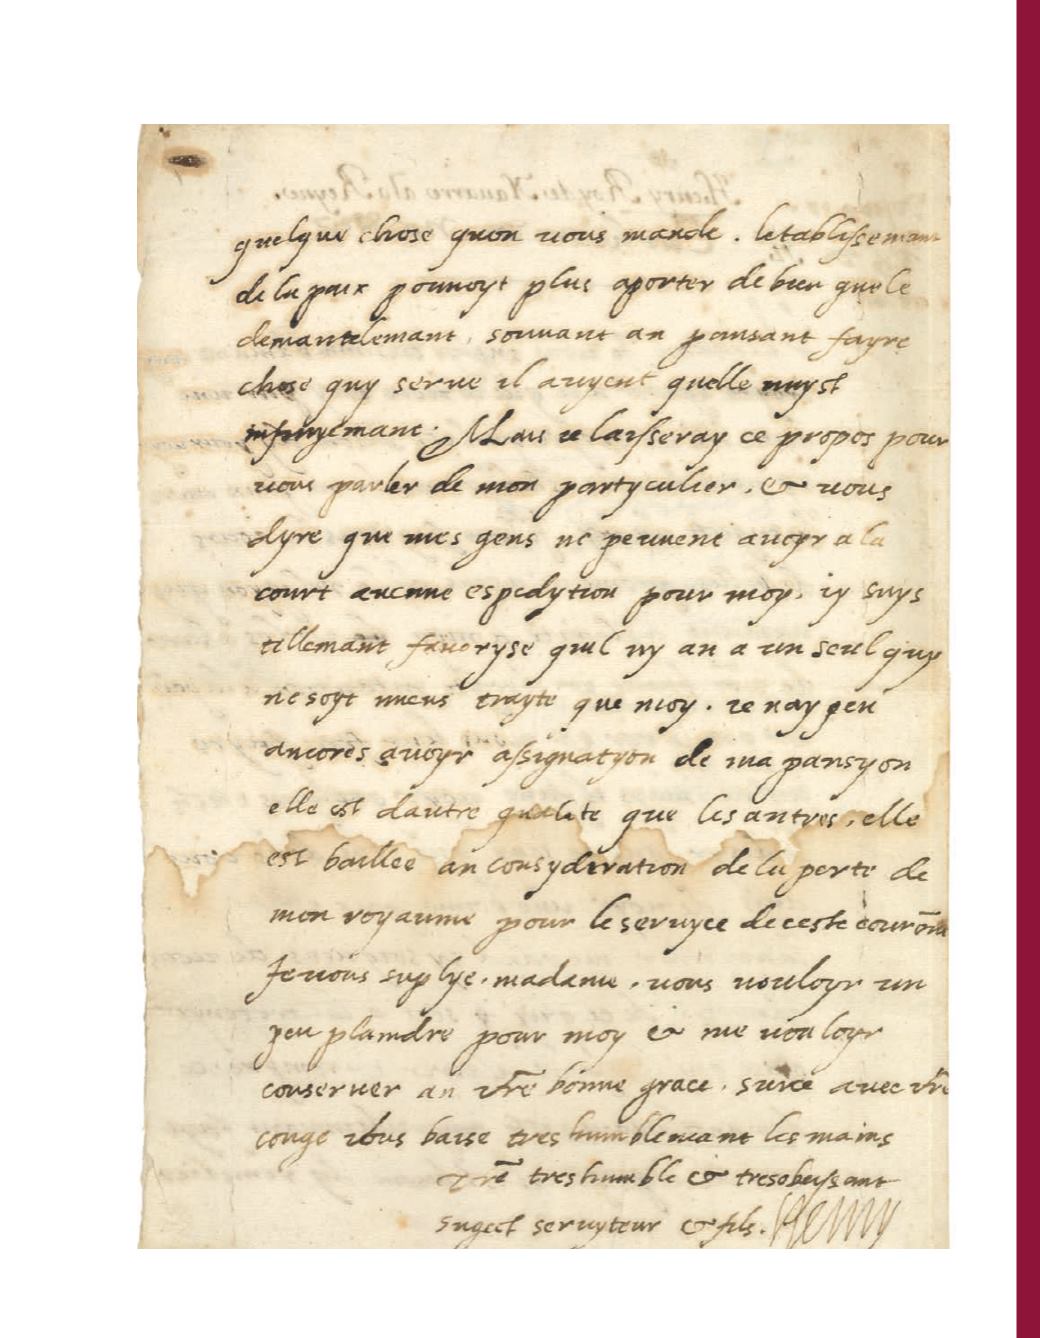 quelque chose quon vous mande. letablissemant
de la paix pouvoyt plus aporter de bien que le
demantelemant, souvant an pansant fayre
chose quy serve il avyent quelle nuyst
Mais ie laisseray ce propos pour
vous parler de mon partyculier, & vous
dyre que mes gens ne peuvent avoyr a la
court aucune espedytion pour moy. iy suys
tellemant favoryse quil ny an a un seul quy
ne soyt mieus trayte que moy. ie nay peu
ancores avoyr assignatyon de ma pansyon
elle est dautre qualite que les autres, elle
est baillee an consyderation de la perte de
mon royaume pour le servyce de ceste courōne
Je vous suplye, madame, vous vouloyr un
peu plaindre pour moy & me vouloyr
conserver an vr̃e bonne grace. surce avec vr̃e
conge vous baise tres humblemant les mains
Vr̃e treshumble & tresobeyssant
sugect servyteur & fils. Henry
Henry Roy de Navarre a la Reyne.